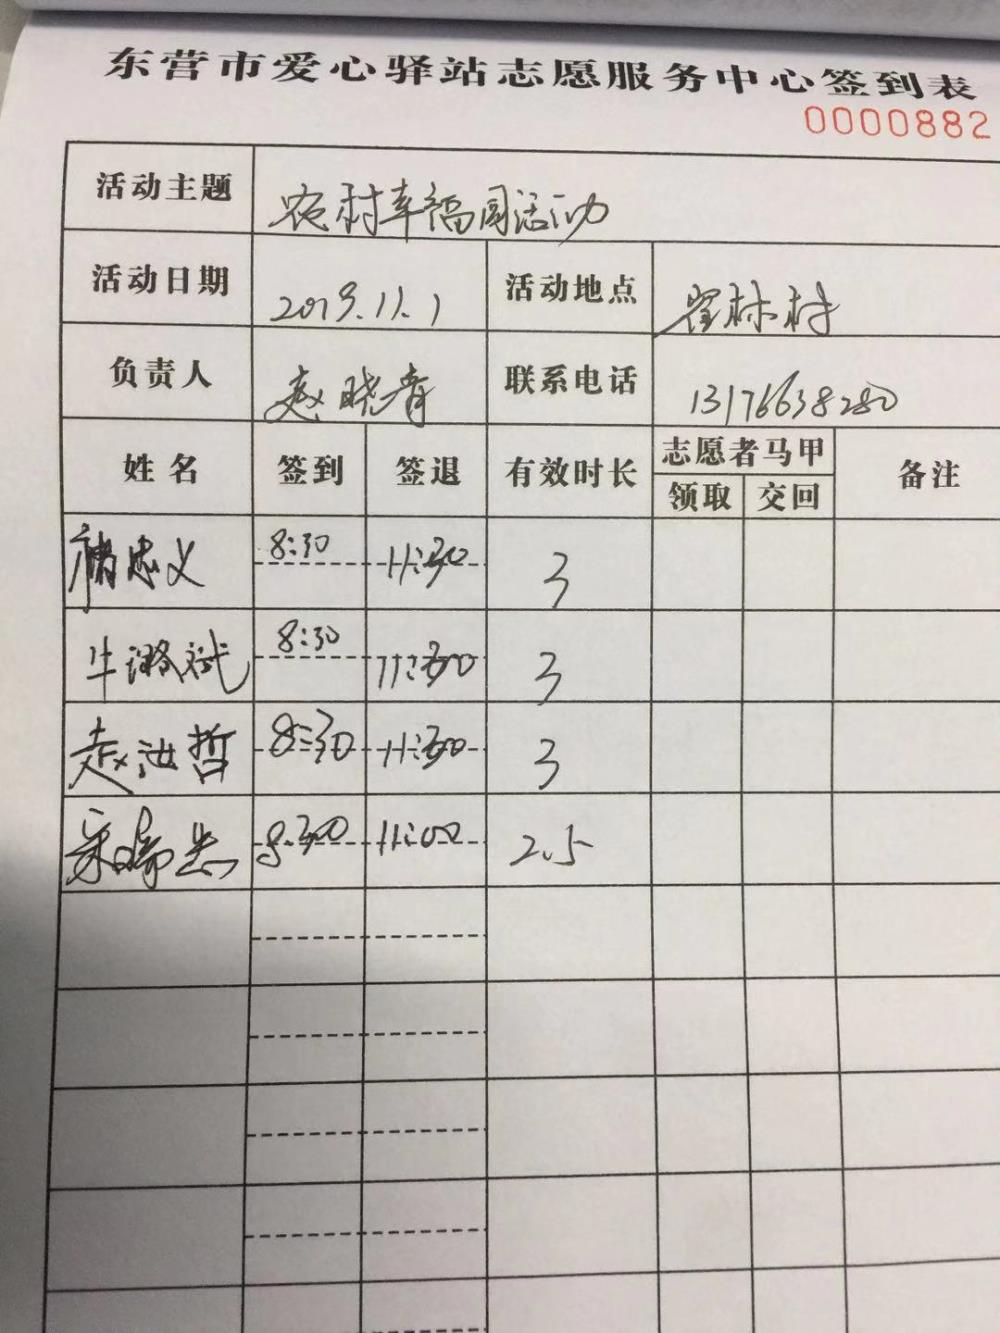 东营市爱心驿站志愿服务中心签到表
0000882
活动主题 农村幸福周活动
活动日期 2019.11.1 活动地点 林村
负责人 赵晓青 联系电话 13176638280
姓名 签到 签退 有效时长 志愿者马甲 备注
领取 交回
忠义 8:30 11:30 3
牛潞斌 8:30 11:30 3
赵汝哲 8:30 11:30 3
8:30 11:00 2.5